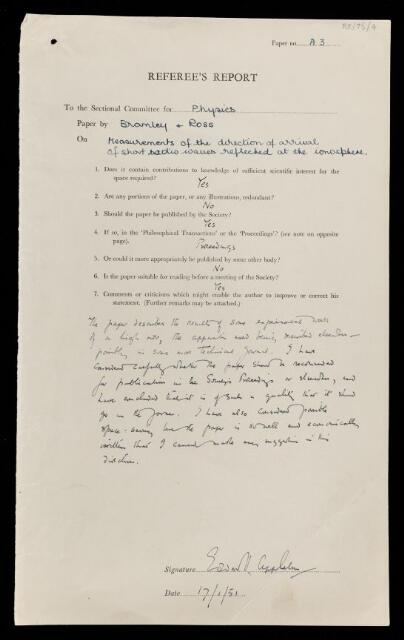 RR/75/4
Paper no. A 3
REFEREE'S REPORT
To the Sectional Committee for Physics
Paper by Bramley + Ross
On Measurements of the direction of arrival
of short radio waves reflected at the ionosphere.
1. Does it contain contributions to knowledge of sufficient scientific interest for the
space required?
Yes
2. Are any portions of the paper, or any illustrations, redundant?
No
3. Should the paper be published by the Society?
Yes
4. If so, in the 'Philosophical Transactions' or the 'Proceedings'? (see note on opposite
page).
Proceedings
5. Or could it more appropriately be published by some other body?
No
6. Is the paper suitable for reading before a meeting of the Society?
Yes
7. Comments or criticisms which might enable the author to improve or correct his
statement. (Further remarks may be attached.)
The paper describes the results of some experimental work
of a high order, the apparatus used being described elsewhere –
possibly in some more technical journal. I have
considered carefully whether the paper should be recommended
for publication in the Society's Proceedings or elsewhere, and
have concluded that it is of such a quality that it should
go in the former. I have also considered possible
space-saving but the paper is so well and economically
written that I cannot make any suggestion in this
direction.
Signature Edward V. Appleton
Date 17/1/51